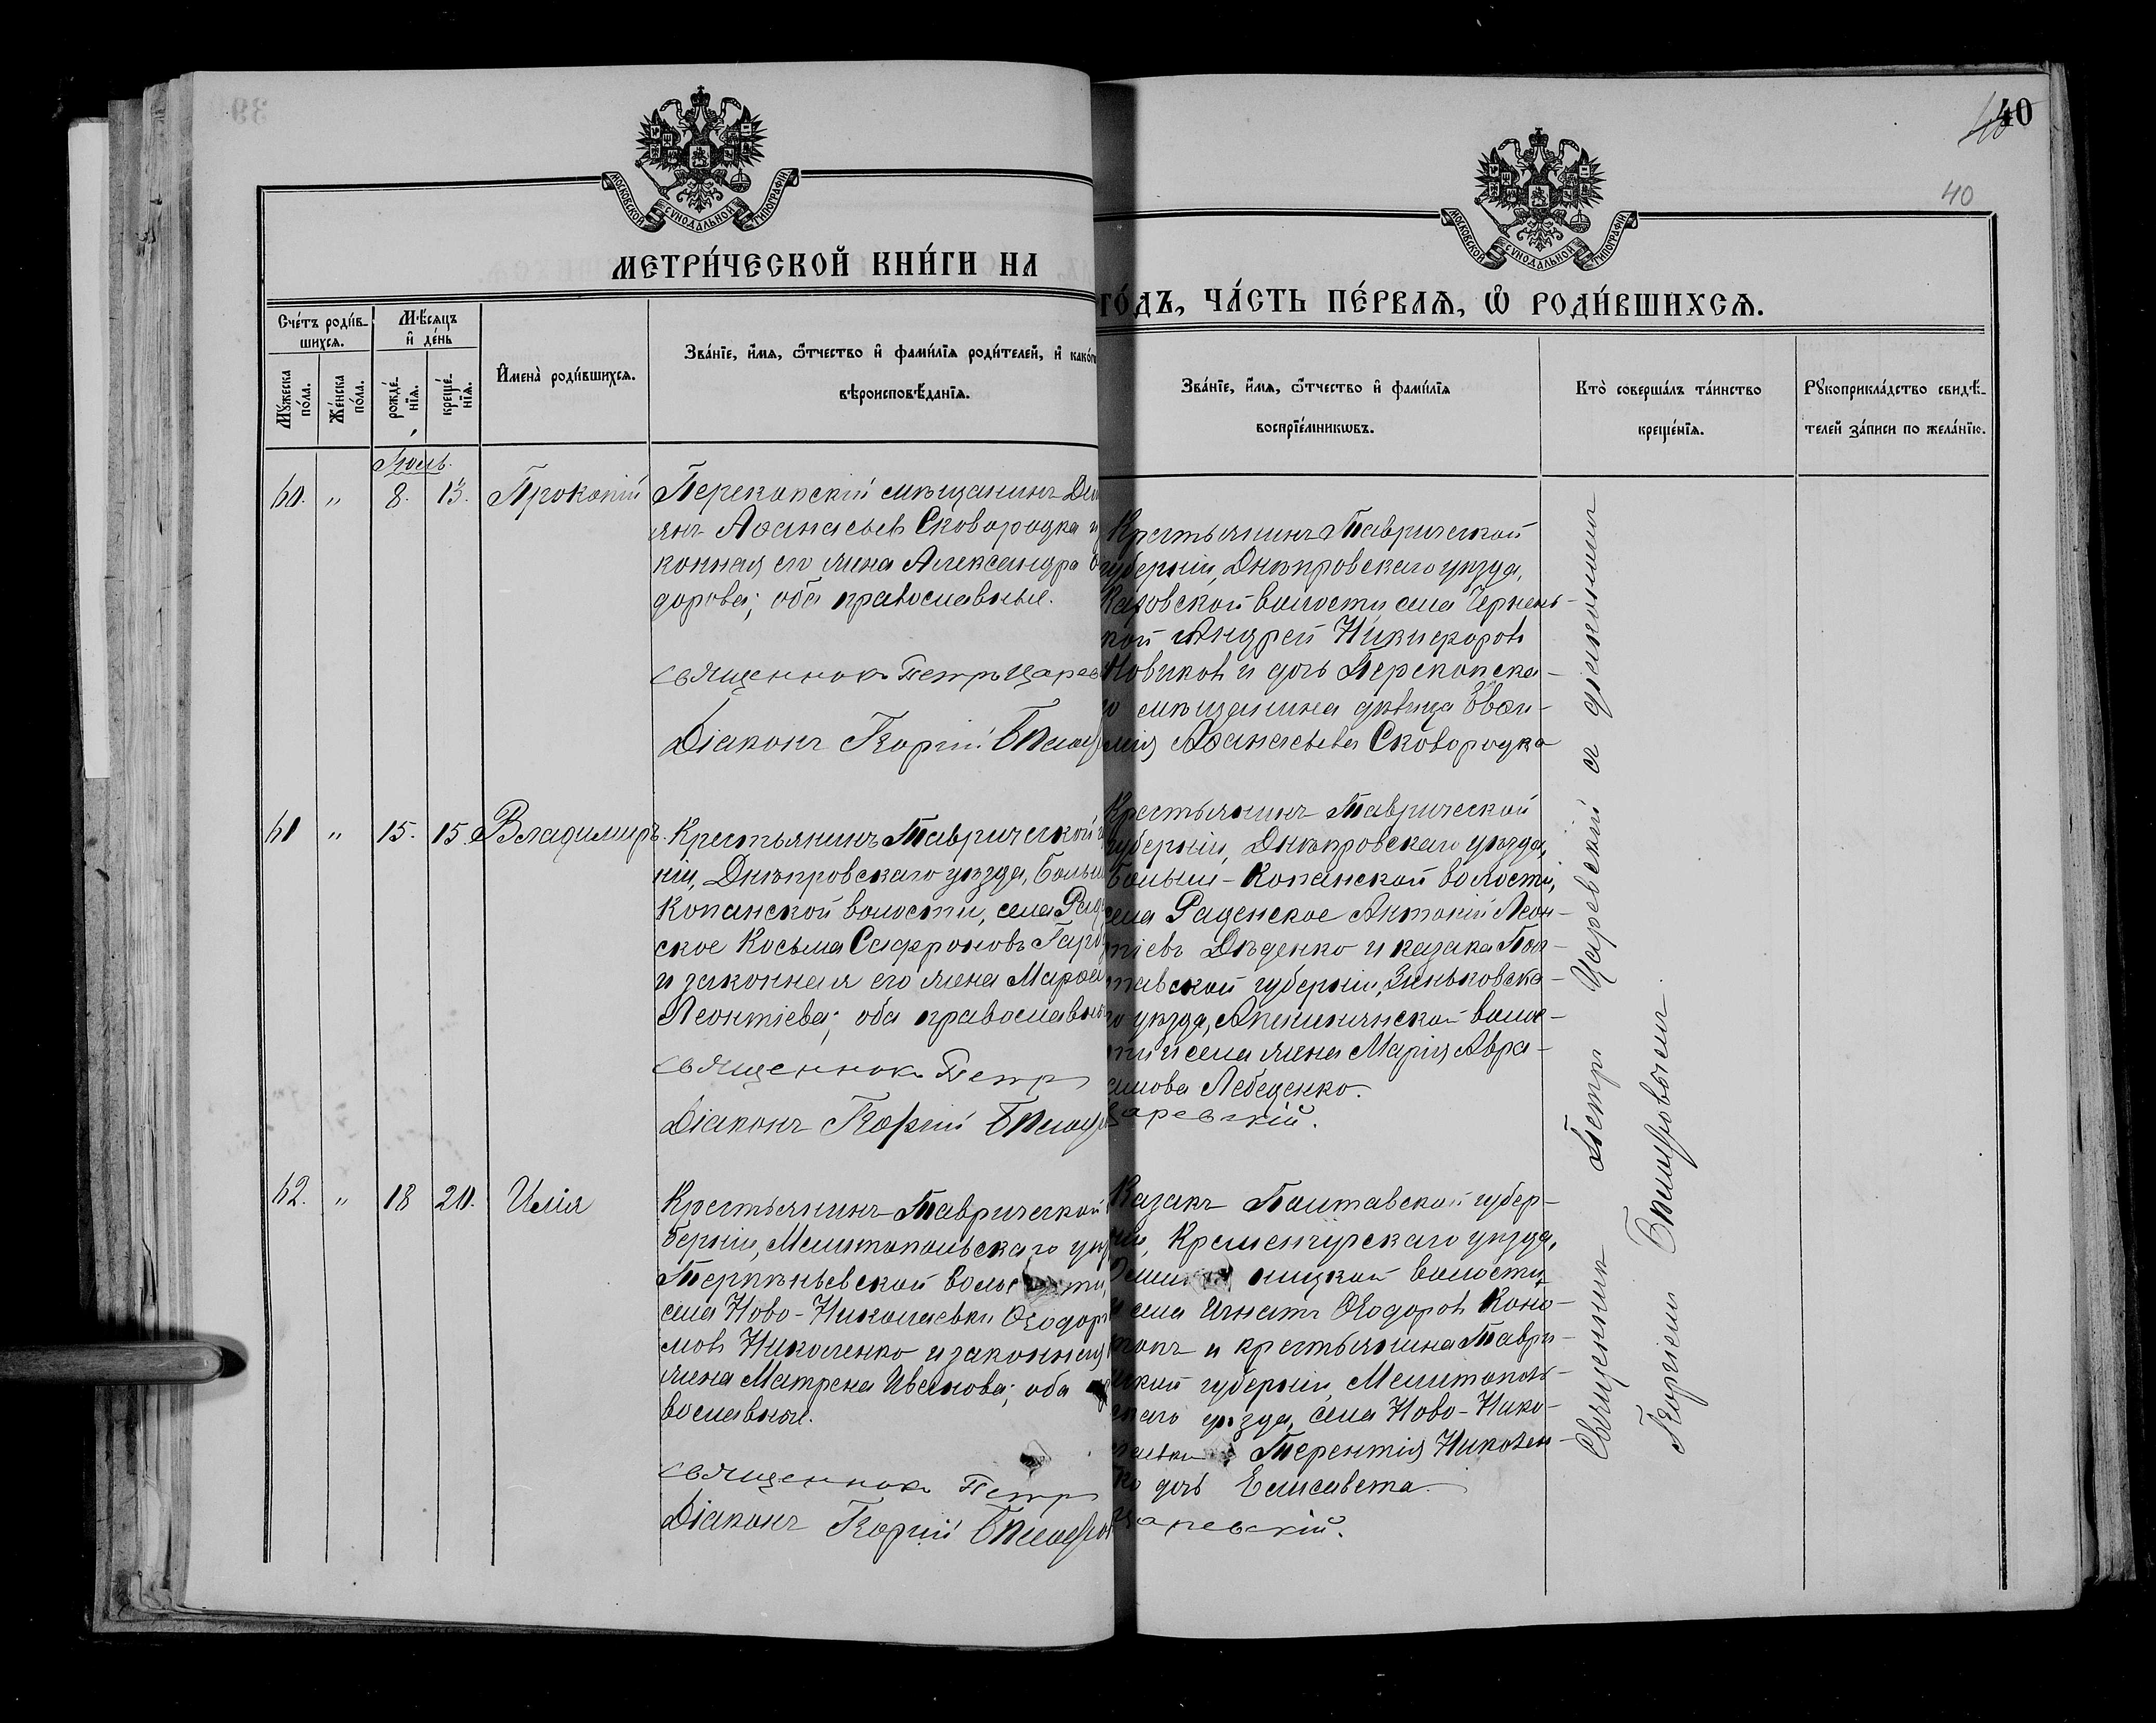 40
40
40
МОСКОВСКОЙ СѴНОДАЛЬНОЙ ТИПОГРАФІИ
МОСКОВСКОЙ СѴНОДАЛЬНОЙ ТИПОГРАФІИ
МЕТРИ́ЧЕСКОЙ КНИ́ГИ НА
ГО́ДЪ, ЧА́СТЬ ПЕ́РВАѦ, Ѽ РОДИ́ВШИХСѦ.
Сче́тъ роди́в-
шихсѧ.
Мꙋ́жеска по́ла.
Же́нска по́ла.
Мѣ́сѧцъ
и҆ де́нь
рожде́нїѧ.
креще́нїѧ.
И҆мена̀ роди́вшихсѧ.
Зва́нїе, и҆́мѧ, ѻ҆́тчество и҆ фами́лїѧ роди́телей, и҆ како́гѡ
вѣроисповѣ́данїѧ.
Зва́нїе, и҆́мѧ, ѻ҆́тчество и҆ фами́лїѧ
воспрїе́мникѡвъ.
Кто̀ соверша́лъ та́инство
креще́нїѧ.
Рꙋкоприкла́дство свидѣ́-
телей за́писи по жела́нїю.
Іюль.
60. " 8. 13. Прокопій
Перекопскій мѣщанинъ Дем
янъ Аѳанасьевъ Сковородка и
конная его жена Александра Ѳ
дорова; оба православные.
Священникъ Петръ Царев
Діаконъ Георгій
Крестьянинъ Таврической
губерніи, Днѣпровскаго уѣзда,
Каховской волости села Чернень-
кой Андрей Никифоровъ
Новиковъ и дочь Перекопска-
го мѣщанина дѣвица Евѳи-
мія Аѳанасьева Сковородка
61 " 15. 15. Владимиръ.
Крестьянинъ Таврической г
ніи, Днѣпровскаго уѣзда, Больш
Копанской волости, села Рад
ское Косьма Сафроновъ
и законная его жена Марѳа
Леонтіева; оба православн
Священникъ Петръ
Діаконъ Георгій
Крестьянинъ Таврической
губерніи, Днѣпровскаго уѣзда,
Больше-Копанской волости,
села Раденское Антоній Леон-
тіевъ Дѣденко и казака Пол-
тавской губерніи, Зиньковска-
го уѣзда, волос-
ти и села жена Марія Авра-
амова Лебеденко.
Царевскій.
62. " 18 20. Илія
Крестьянинъ Таврической
берніи, Мелитопольскаго уѣз
Терпѣньевской воло ти,
села Ново-Николаевки Ѳеодоръ
мовъ Николенко и законная
жена Матрена Иванова; оба
вославные.
Священникъ Петръ
Діаконъ Георгій
Казакъ Полтавской губер-
ніи, Кременчугскаго уѣзда,
волости
и села Игнатъ Ѳеодоровъ Коно-
и крестьянина Таври-
ской губерніи Мелитополь-
скаго уѣзда, села Ново-Нико-
лаевки Терентія Николен-
ко дочь Елисавета.
Царевскій.
Священникъ Петръ Царевскій съ діакономъ
Георгіемъ